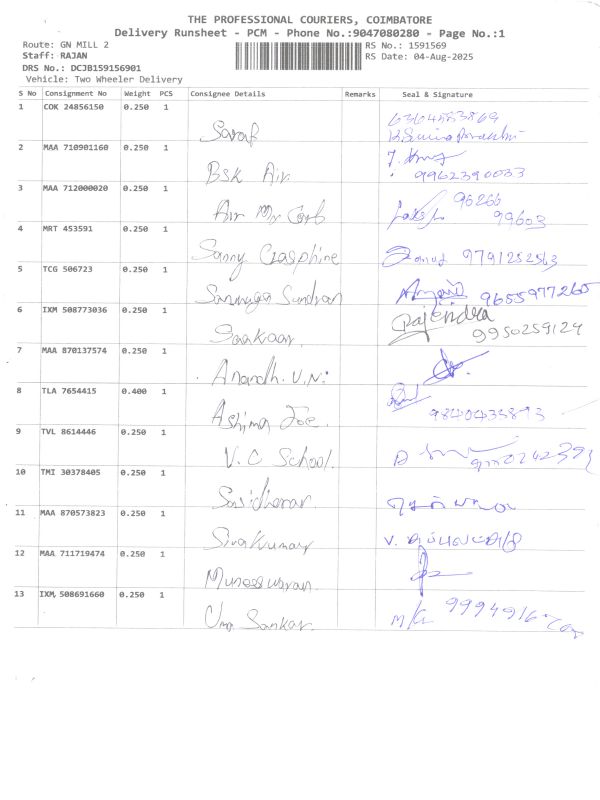 THE PROFESSIONAL COURIERS, COIMBATORE
Delivery Runsheet - PCM - Phone No.:9047080280 - Page No.:1
Route: GN MILL 2 RS No.: 1591569
Staff: RAJAN RS Date: 04-Aug-2025
DRS No.: DCJB159156901
Vehicle: Two Wheeler Delivery
S No Consignment No Weight PCS Consignee Details Remarks Seal & Signature
1 COK 24856150 0.250 1
2 MAA 710901160 0.250 1
BSK Air 9962390033
3 MAA 712000020 0.250 1
Air 96266
99603
4 MRT 453591 0.250 1
Sanny 9791252563
5 TCG 506723 0.250 1
Sanmuga Sundram 9655977265
6 IXM 508773036 0.250 1
Rajendra
9950259129
7 MAA 870137574 0.250 1
Anandh. V.N.
8 TLA 7654415 0.400 1
Ashima Joe.
9 TVL 8614446 0.250 1
V.C School.
10 TMI 30378405 0.250 1
Sasidharan.
11 MAA 870573823 0.250 1
Sivakumar
12 MAA 711719474 0.250 1
Muneeswaran.
13 IXM 508691660 0.250 1
Uma Sankar.